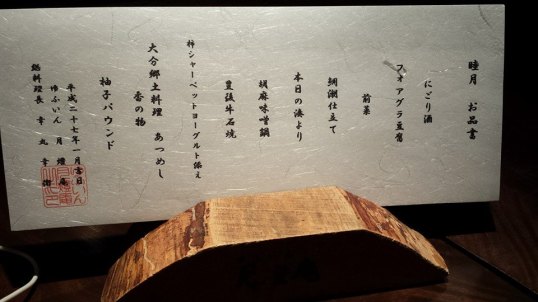 睦月 お品書
にごり酒
フォアグラ豆腐
前菜
鯛潮仕立て
本日の湊より
胡麻味噌鍋
豊後牛石焼
柿シャーベットヨーグルト添え
大分郷土料理 あつめし
香の物
柚子パウンド
平成二十七年一月吉日
ゆふいん 月燈庵
総料理長 幸丸